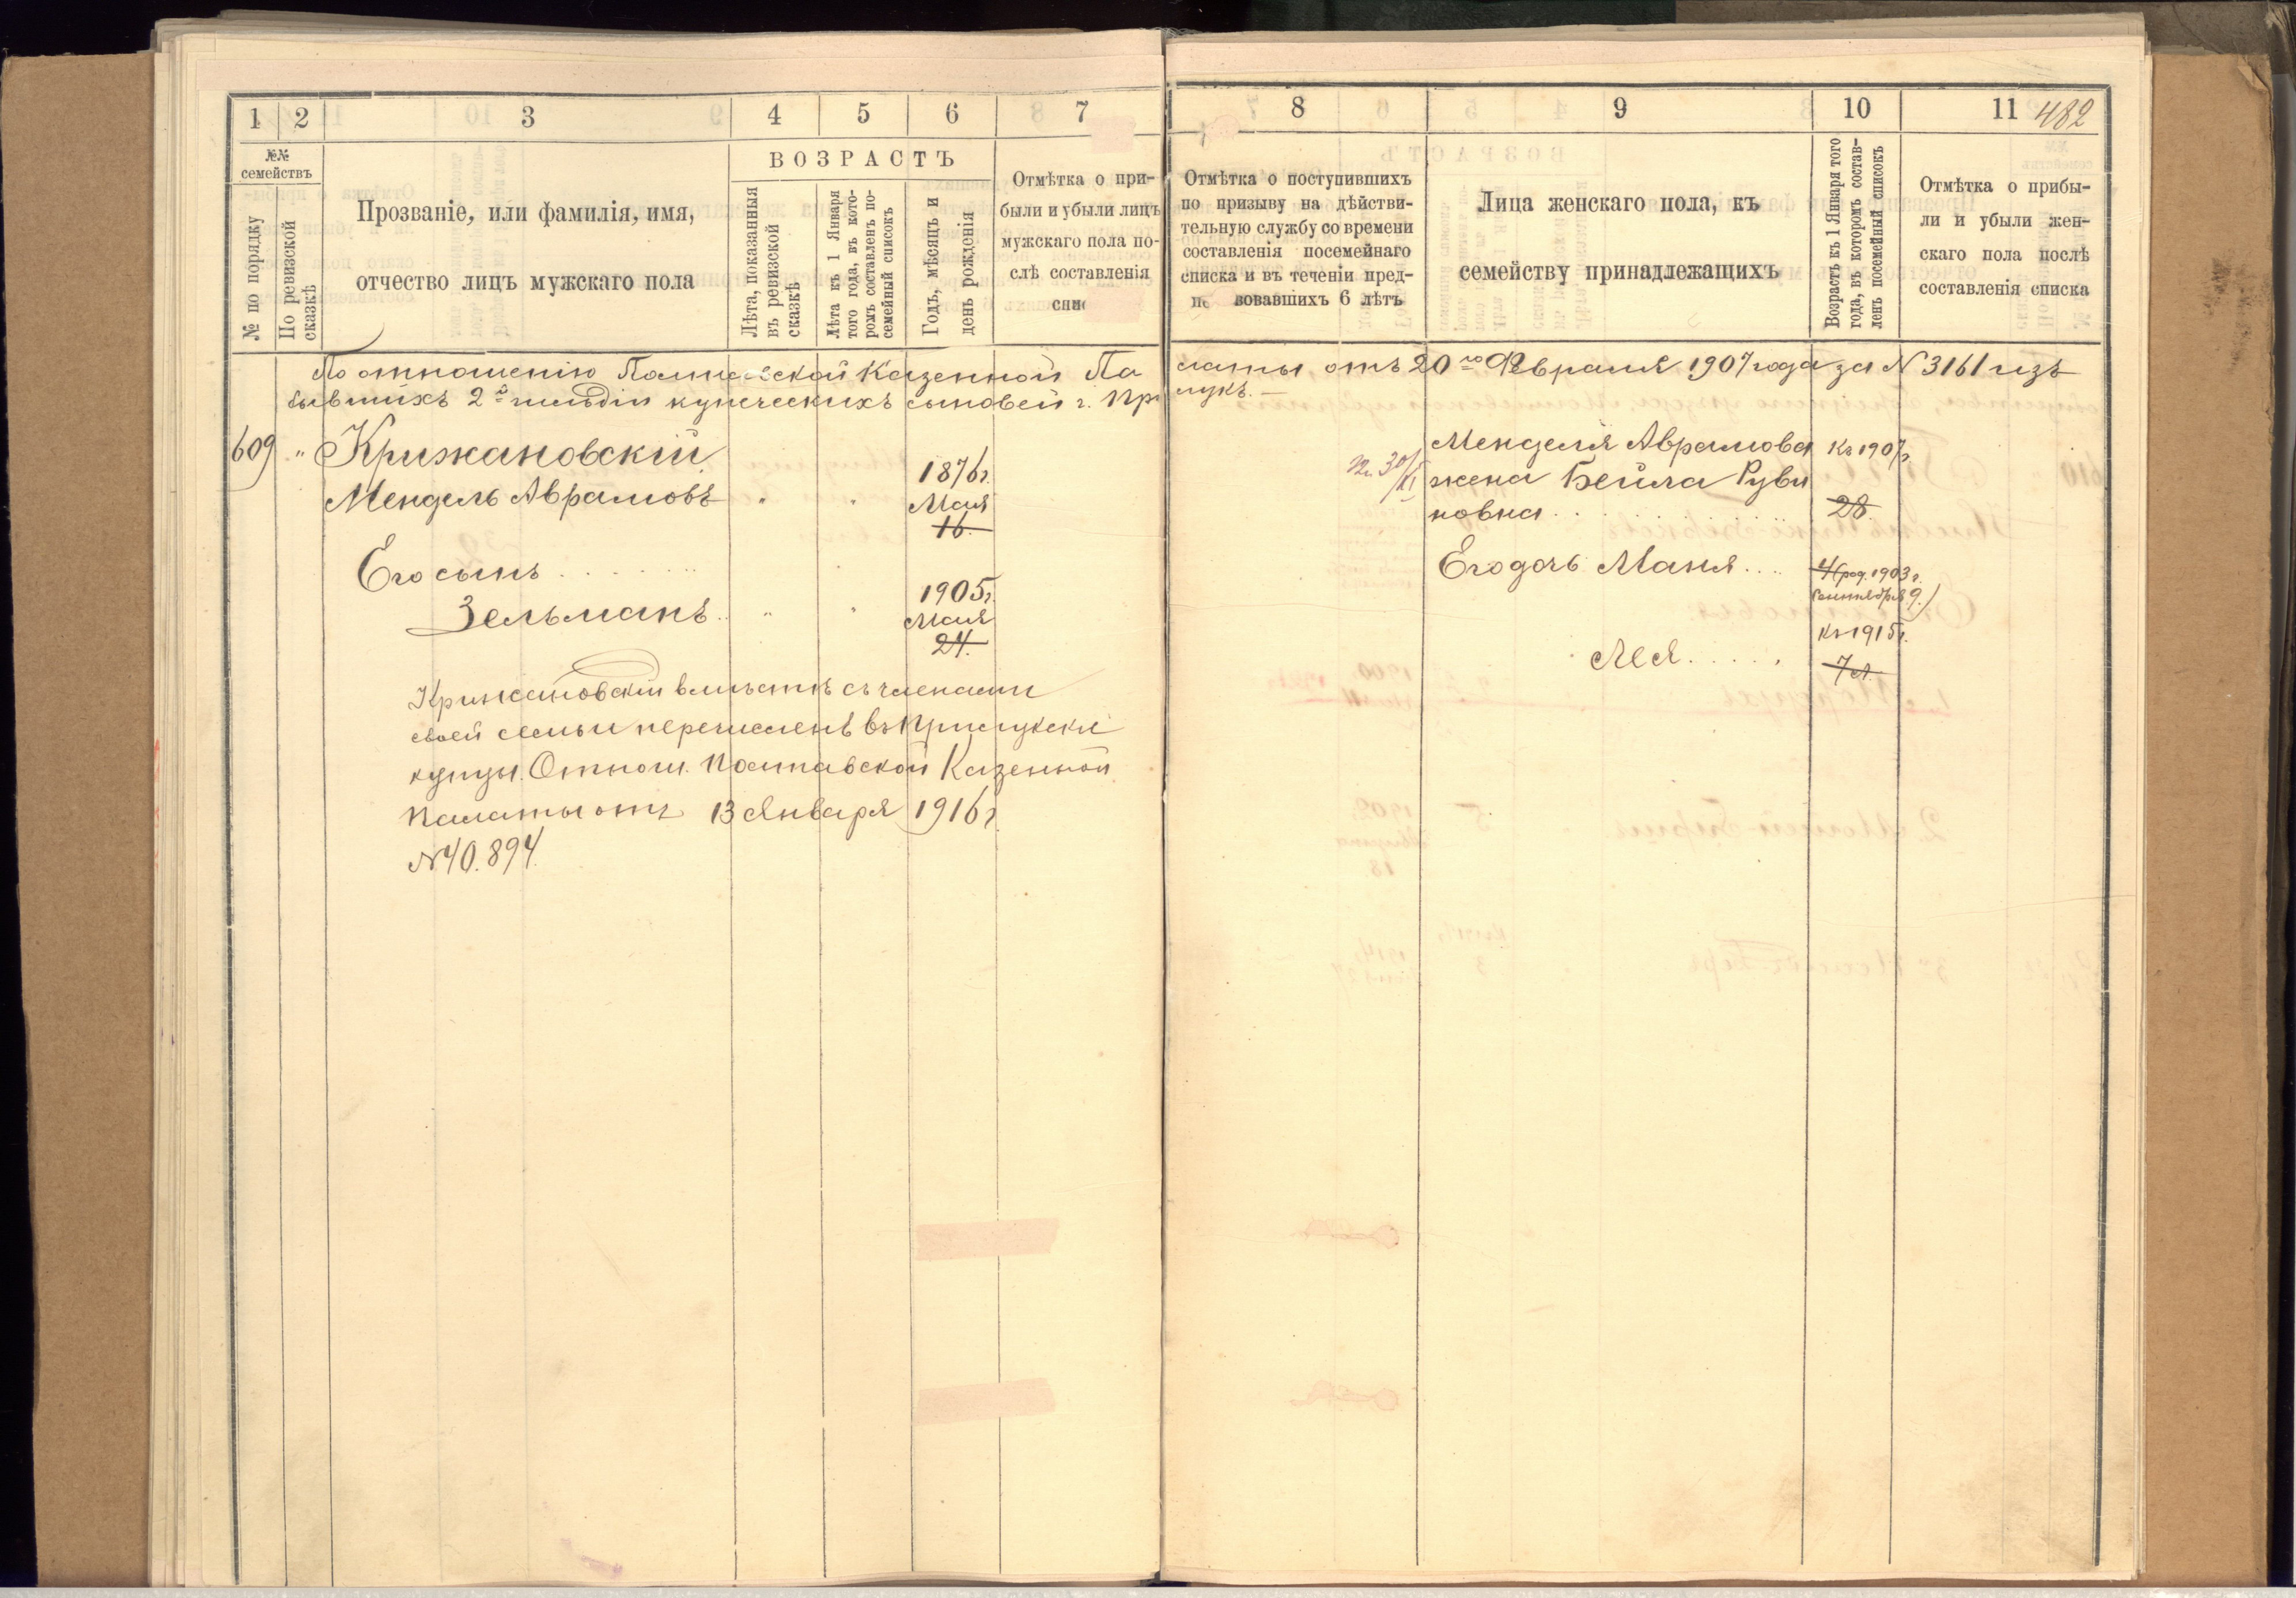 1 2 3 4 5 6 7
№№ семействъ
№ по порядку
По ревизской сказкѣ
Прозваніе, или фамилія, имя,
отчество лицъ мужскаго пола
ВОЗРАСТЪ
Лѣта, показанныя
въ ревизской
сказкѣ
Лѣта къ 1 Января
того года, въ кото-
ромъ составленъ по-
семейный списокъ
Годъ, мѣсяцъ и
день рожденія
Отмѣтка о при-
были и убыли лицъ
мужскаго пола по-
слѣ составленія
спис
8 9 10 11 482
Отмѣтка о поступившихъ
по призыву на дѣйстви-
тельную службу со времени
составленія посемейнаго
списка и въ теченіи пред-
вовавшихъ 6 лѣтъ
Лица женскаго пола, къ
семейству принадлежащихъ
Возрастъ къ 1 Января того
года, въ которомъ состав-
ленъ посемейный списокъ
Отмѣтка о прибы-
ли и убыли жен-
скаго пола послѣ
составленія списка
По отношенію Полтавской Казенной Па латы отъ 20го Февраля 1907 года за N 3161 изъ
бывшихъ 2й гильдіи купеческихъ сыновей г. При лукъ. —
609 " Крижановскій
Мендель Аврамовъ " " 1876г.
Мая
16.
Его сынъ . . . . . . .
Зельманъ . . " " 1905г.
Мая
24.
Крижановскій вмѣстѣ съ членами
своей семьи перечисленъ въ Прилукскіе
купцы. Отнош. Полтавской Казенной
Палаты отъ 13 Января 1916г.
N 40.894.
Менделя Аврамова Къ 1907г.
жена Бейла Руви
новна . . . . . . . 28.
Его дочь Маня . . . . 4 (род. 1903г.
Сентября 9.)
Къ 1915г.
Лея . . . . . 7 л.